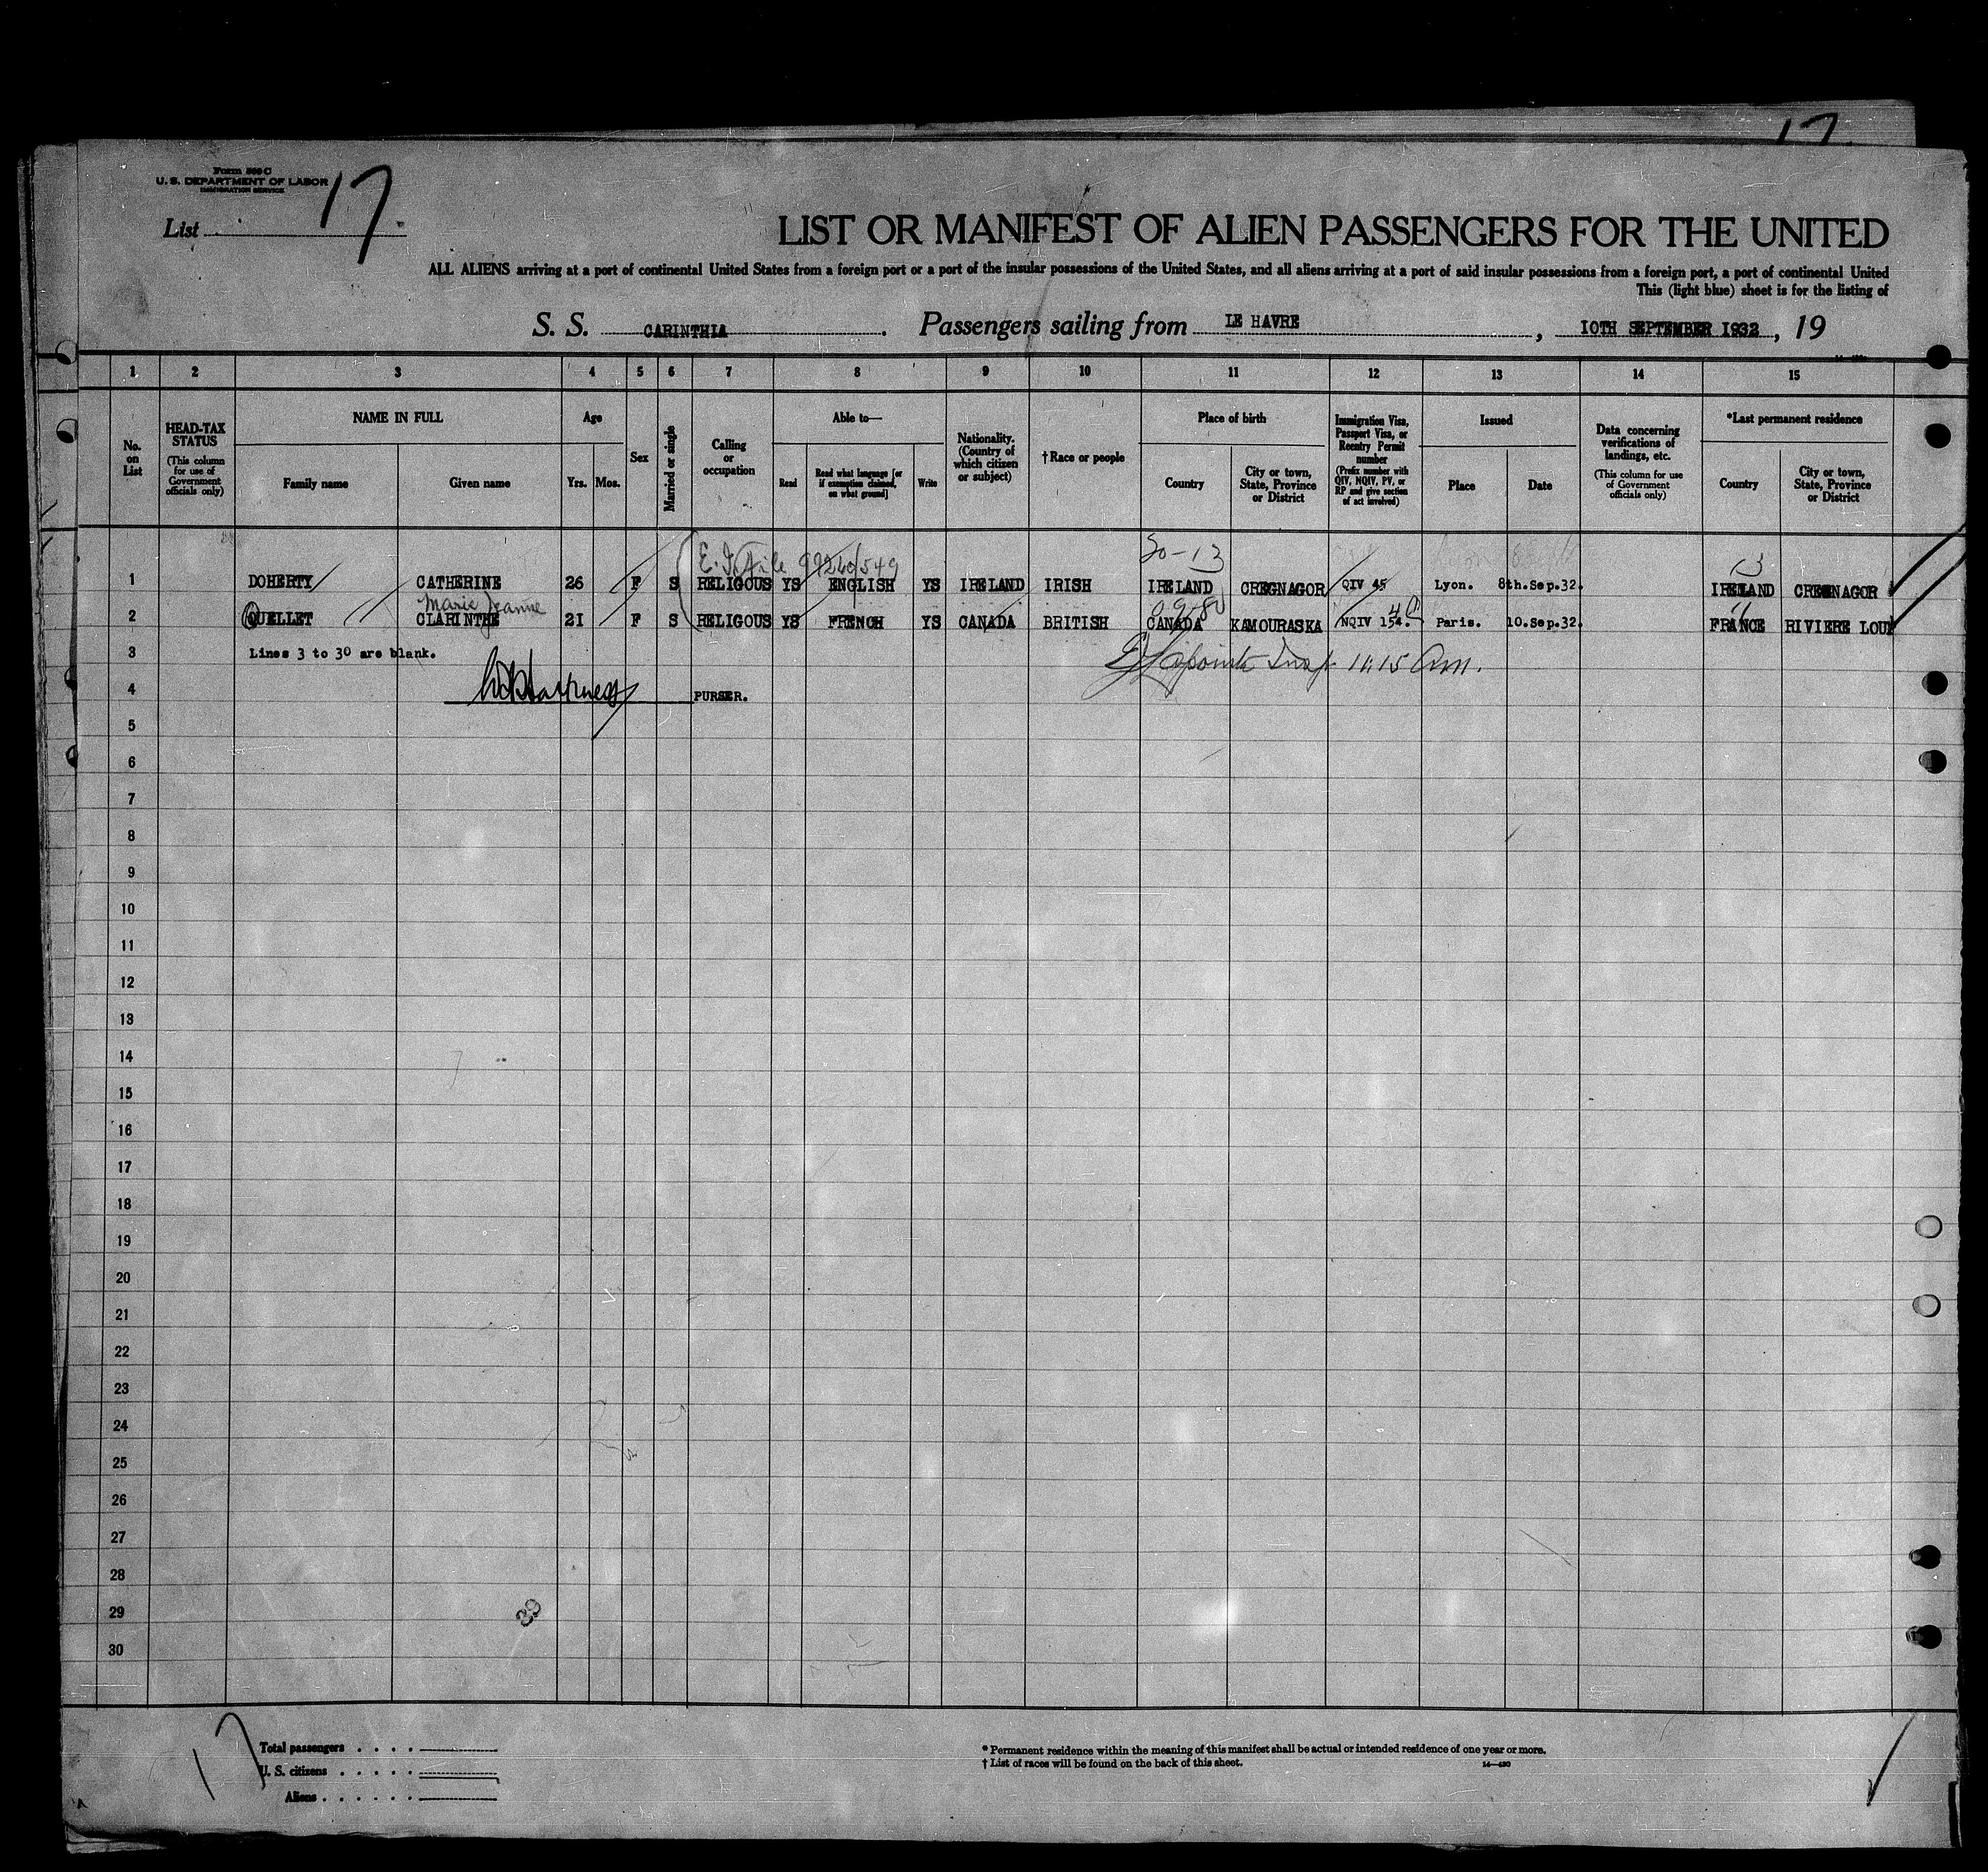 17.
Form 500 C
U. S. DEPARTMENT OF LABOR
IMMIGRATION SERVICE
List 17
LIST OR MANIFEST OF ALIEN PASSENGERS FOR THE UNITED
ALL ALIENS arriving at a port of continental United States from a foreign port or a port of the insular possessions of the United States, and all aliens arriving at a port of said insular possessions from a foreign port, a port of continental United
This (light blue) sheet is for the listing of
S. S. CARINTHIA. Passengers sailing from LE HAVRE, 10TH SEPTEMBER 1932, 19
1 2 3 4 5 6 7 8 9 10 11 12 13 14 15
No. on List
HEAD-TAX STATUS
(This column for use of Government officials only)
NAME IN FULL
Family name Given name
Age
Yrs. Mos.
Sex
Married or single
Calling or occupation
Able to—
Read Read what language [or if exemption claimed, on what ground] Write
Nationality. (Country of which citizen or subject)
† Race or people
Place of birth
Country City or town, State, Province or District
Immigration Visa, Passport Visa, or Reentry Permit number
(Prefix number with QIV, NQIV, PV, or RP and give section of act involved)
Issued
Place Date
Data concerning verifications of landings, etc.
(This column for use of Government officials only)
*Last permanent residence
Country City or town, State, Province or District
E. I. File 99240/549 30-13 13
1 DOHERTY CATHERINE 26 F S RELIGOUS YS ENGLISH YS IRELAND IRISH IRELAND CREGNAGOR QIV 45 Lyon. 8th.Sep.32. IRELAND CREGNAGOR
Marie Jeanne
2 OUELLET CLARINTHE 21 F S RELIGOUS YS FRENCH YS CANADA BRITISH CANADA KAMOURASKA NQIV 154. Paris. 10.Sep.32. FRANCE RIVIERE LOUP
3 Lines 3 to 30 are blank. Lapointe Insp 11:15 Am.
4 PURSER.
5
6
7
8
9
10
11
12
13
14
15
16
17
18
19
20
21
22
23
24
25
26
27
28
29
30
39
17
Total passengers
U. S. citizens
Aliens
* Permanent residence within the meaning of this manifest shall be actual or intended residence of one year or more.
† List of races will be found on the back of this sheet.
14—430